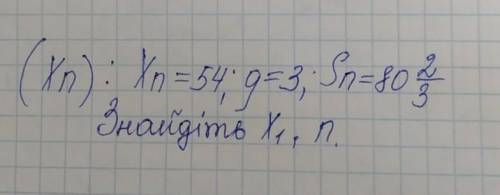 (Xn): Xn=54; g=3; Sn=80 2/3
Знайдіть X₁, n.